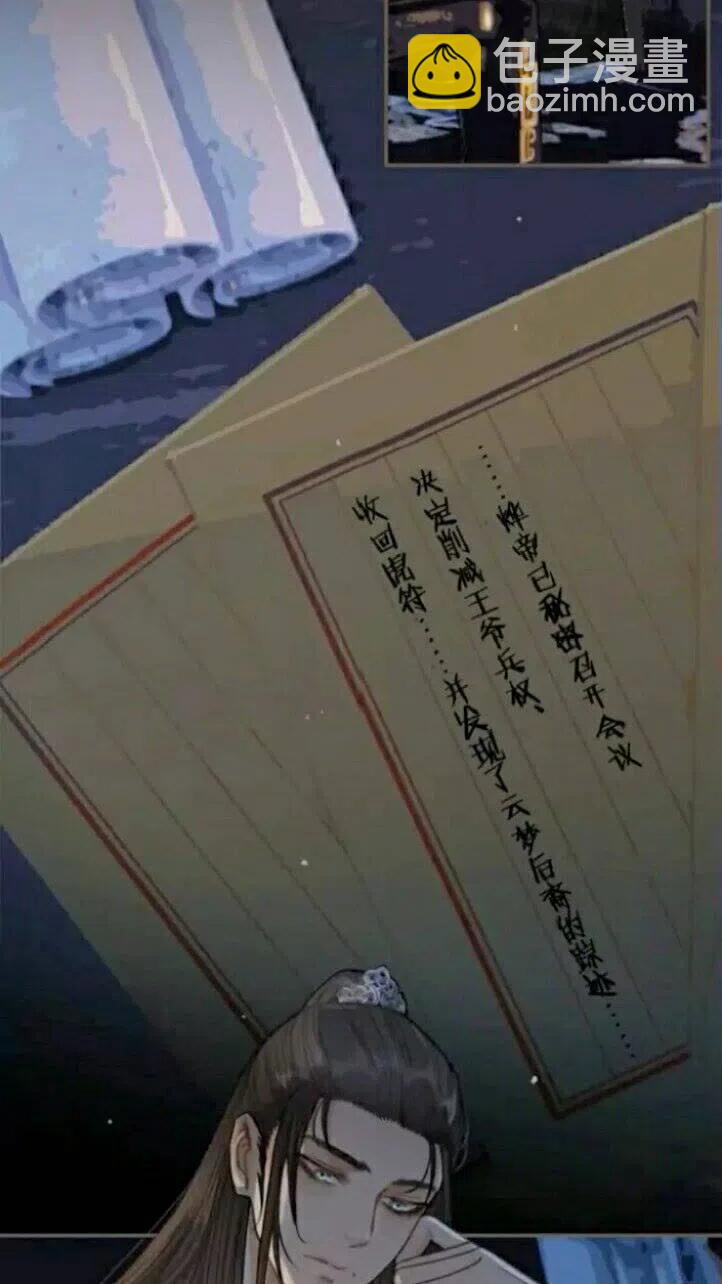 包子漫畫
baozimh.com
……烨帝已秘密召开会议
决定削减王爷兵权、
收回虎符……并发现了云梦后裔的踪迹……